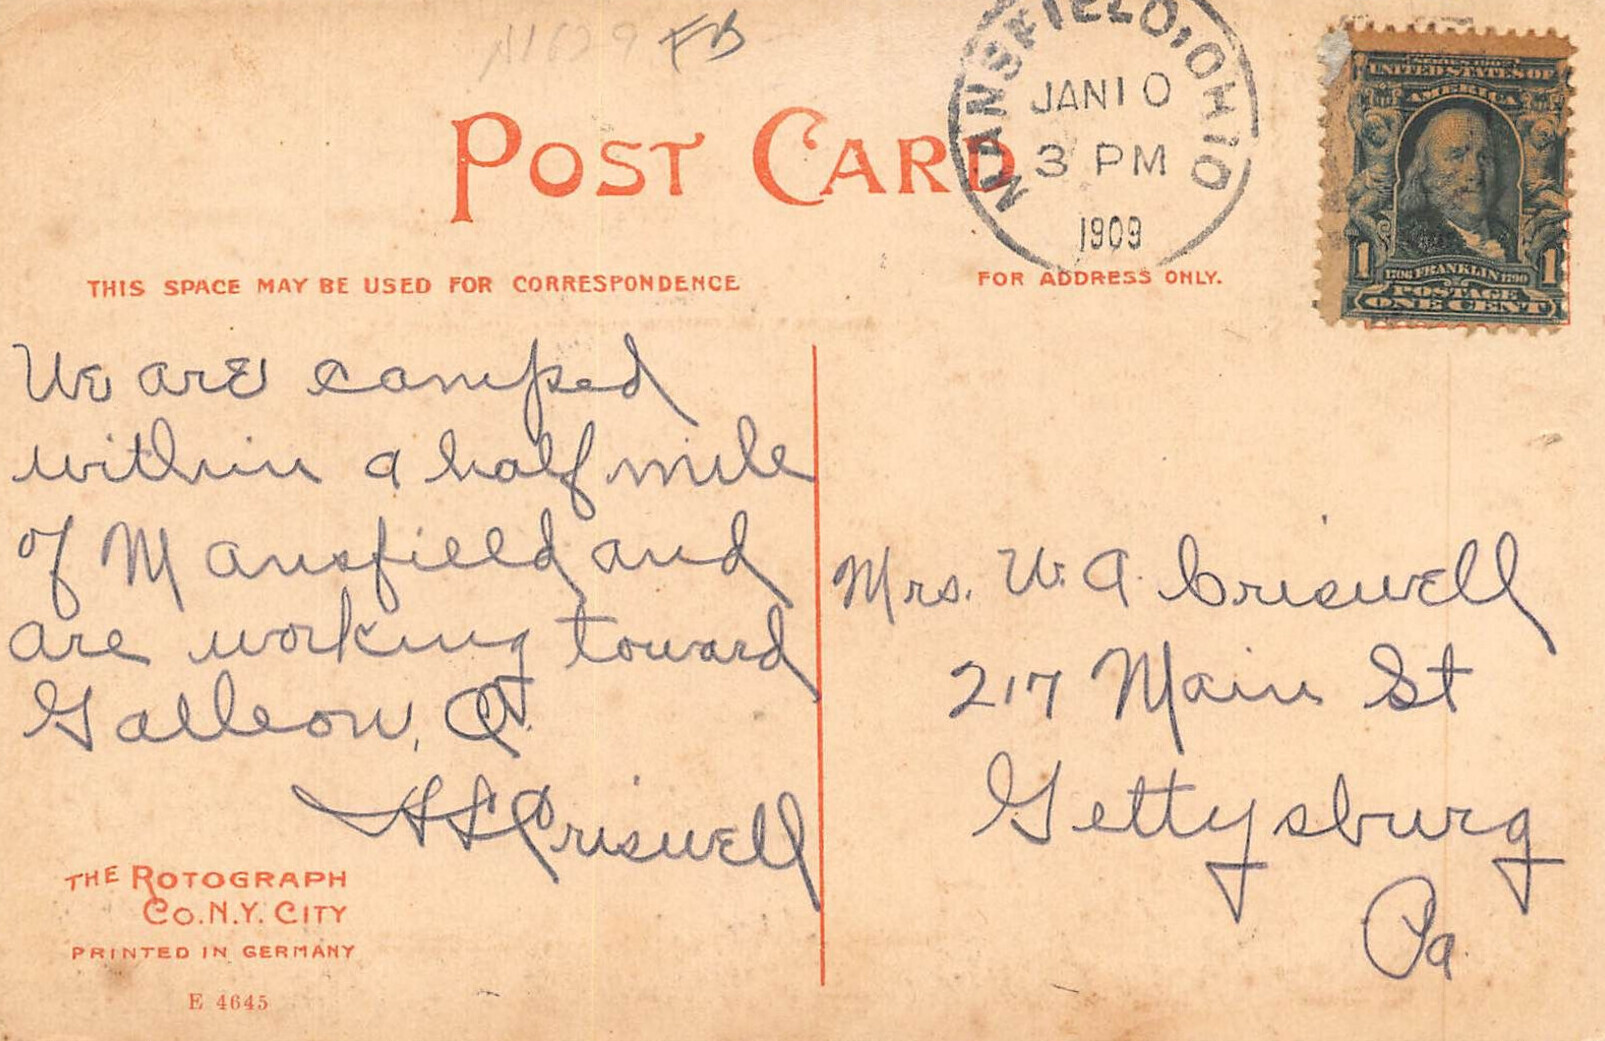 FB
POST CARD
MANSFIELD, OHIO
JAN 10
3 PM
1909
SERIES 1902
UNITED STATES OF
AMERICA
1706 FRANKLIN 1790
1 1
POSTAGE
ONE CENT
THIS SPACE MAY BE USED FOR CORRESPONDENCE
FOR ADDRESS ONLY.
We are camped
within a half mile
of Mansfield and
are working toward
Galleon, O.
H S Criswell
Mrs. W. A. Criswell
217 Main St
Gettysburg
Pa.
THE ROTOGRAPH
CO. N.Y. CITY
PRINTED IN GERMANY
E 4645